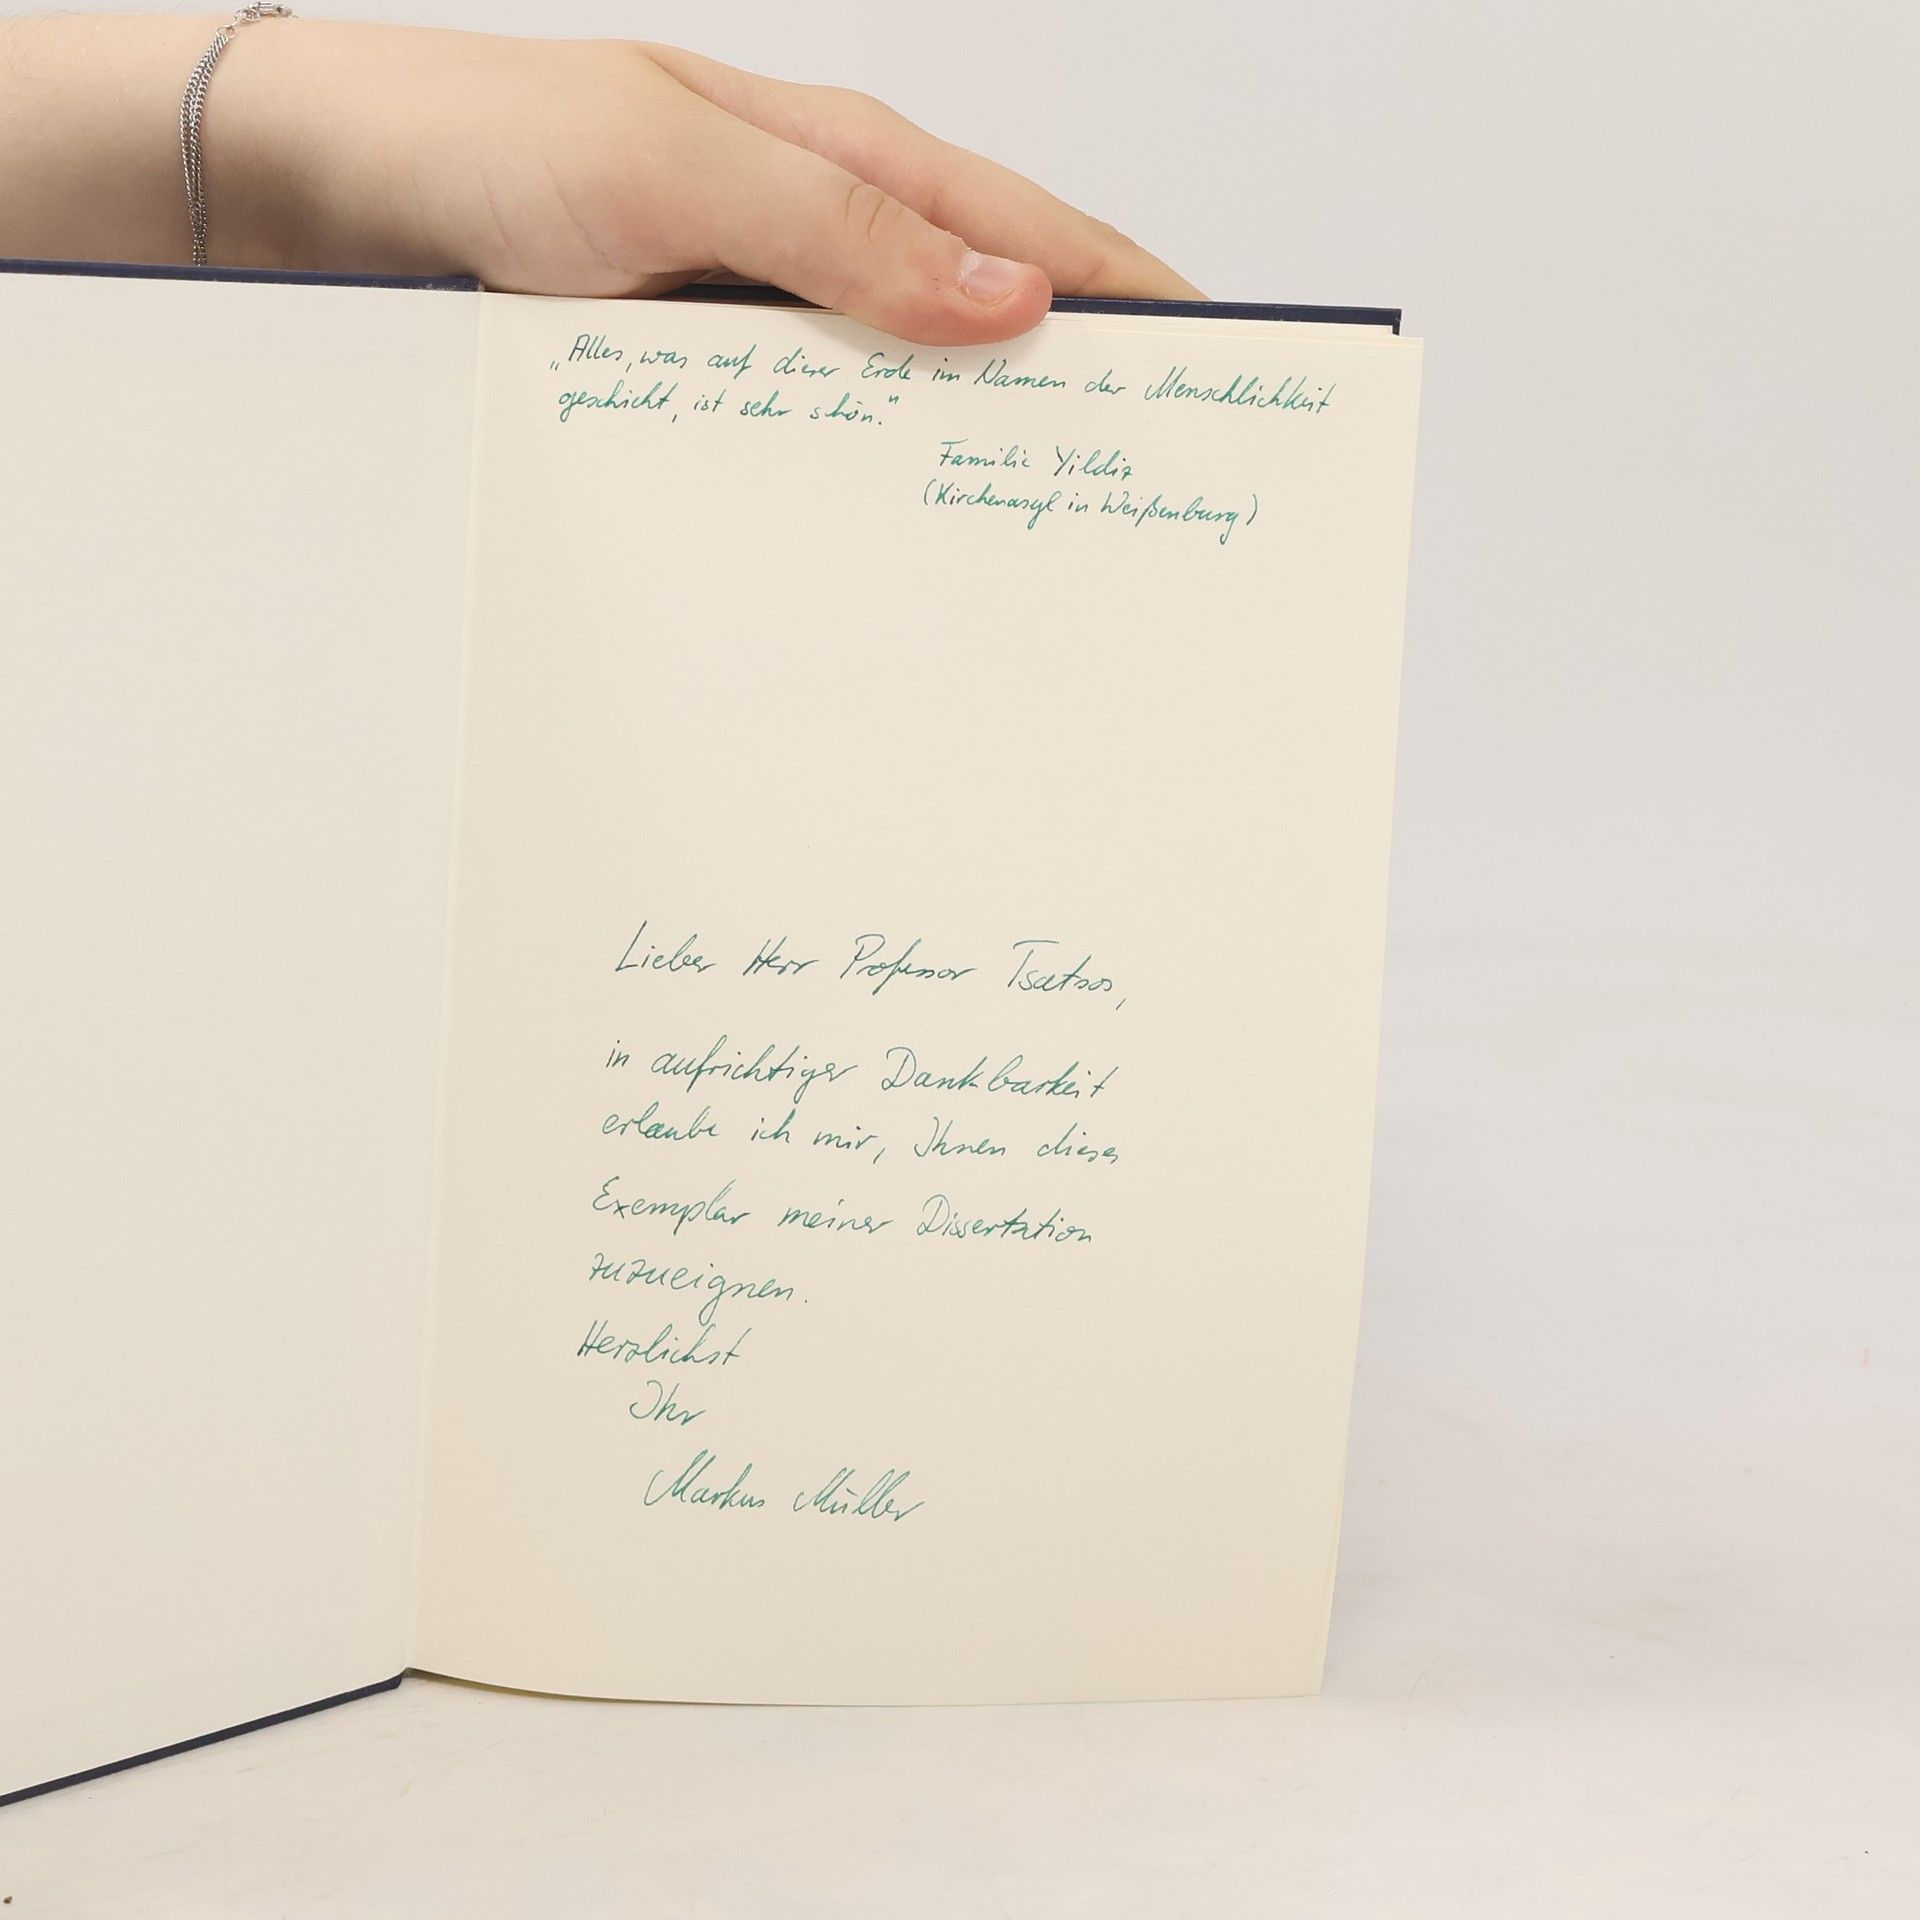 „Alles, was auf dieser Erde im Namen der Menschlichkeit
geschieht, ist sehr schön."
Familie Yildiz
(Kirchenasyl in Weißenburg)
Lieber Herr Professor Tsatsos,
in aufrichtiger Dankbarkeit
erlaube ich mir, Ihnen dieses
Exemplar meiner Dissertation
zuzueignen.
Herzlichst
Ihr
Markus Müller